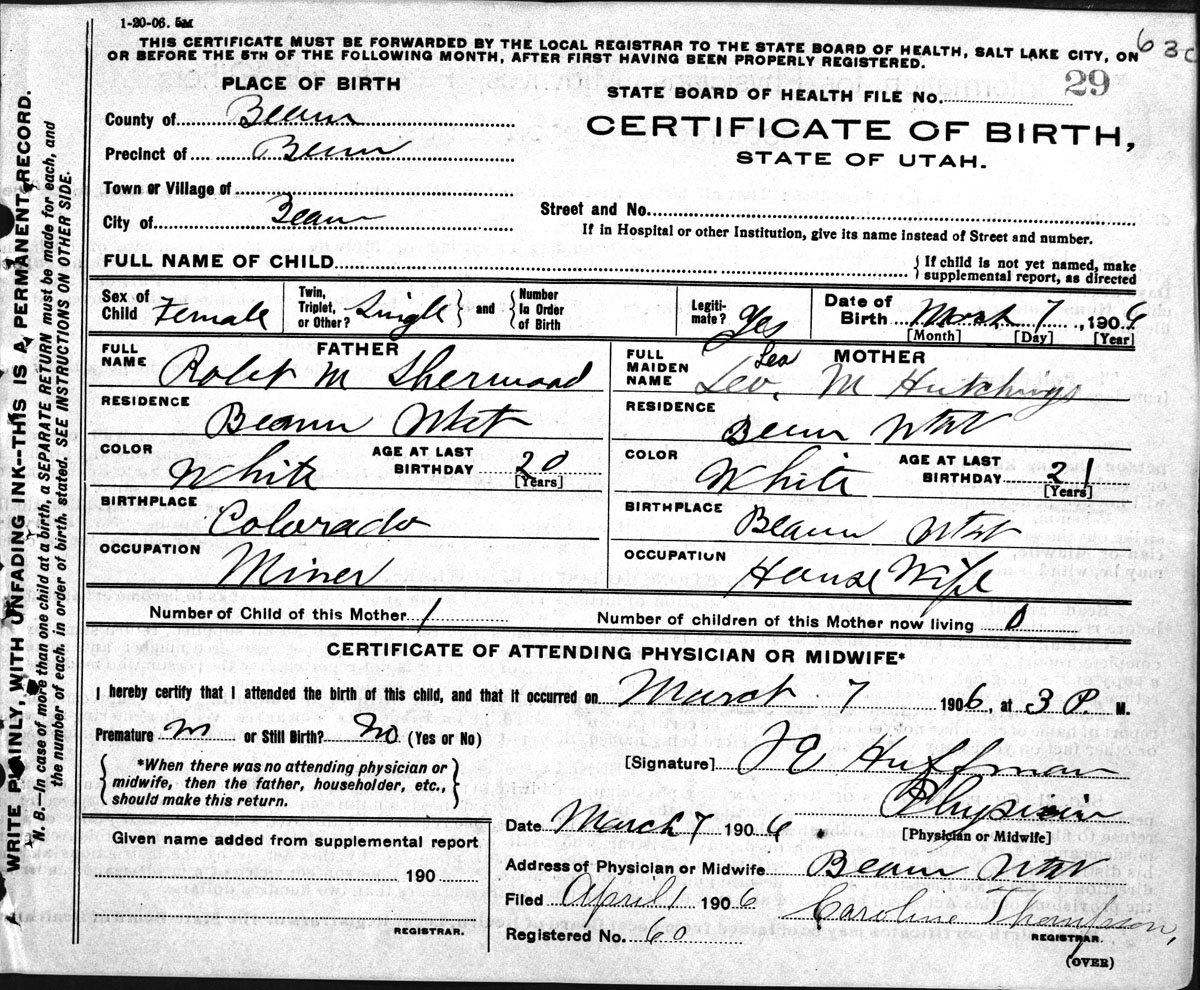 1-20-06. 5M
THIS CERTIFICATE MUST BE FORWARDED BY THE LOCAL REGISTRAR TO THE STATE BOARD OF HEALTH, SALT LAKE CITY, ON
OR BEFORE THE 5TH OF THE FOLLOWING MONTH, AFTER FIRST HAVING BEEN PROPERLY REGISTERED.
630
PLACE OF BIRTH
STATE BOARD OF HEALTH FILE No. 29
County of Beaver
CERTIFICATE OF BIRTH,
Precinct of Beaver
STATE OF UTAH.
Town or Village of
City of Beaver
Street and No.
If in Hospital or other Institution, give its name instead of Street and number.
FULL NAME OF CHILD
{ If child is not yet named, make
supplemental report, as directed
Sex of Child Female
Twin, Triplet, or Other? Single } and { Number in Order of Birth
Legiti-mate? Yes
Date of Birth March 7, 1906
[Month] [Day] [Year]
FATHER
FULL NAME Robt M Sherwood
RESIDENCE Beaver Utah
COLOR White
AGE AT LAST BIRTHDAY 20
[Years]
BIRTHPLACE Colorado
OCCUPATION Miner
MOTHER
Lea
FULL MAIDEN NAME Leo, M Hutchings
RESIDENCE Beaver Utah
COLOR White
AGE AT LAST BIRTHDAY 21
[Years]
BIRTHPLACE Beaver Utah
OCCUPATION House Wife
Number of Child of this Mother 1
Number of children of this Mother now living 0
CERTIFICATE OF ATTENDING PHYSICIAN OR MIDWIFE*
I hereby certify that I attended the birth of this child, and that it occurred on March 7 1906, at 3 P. M.
Premature or Still Birth? No (Yes or No)
[Signature] Huffman
{ *When there was no attending physician or
midwife, then the father, householder, etc.,
should make this return. }
Physician
Date March 7 1906.
[Physician or Midwife]
Given name added from supplemental report
190
REGISTRAR.
Address of Physician or Midwife Beaver Utah
Filed April 1 1906
Caroline Thompson,
Registered No. 60
REGISTRAR.
(OVER)
WRITE PLAINLY, WITH UNFADING INK--THIS IS A PERMANENT RECORD.
N. B.—In case of more than one child at a birth, a SEPARATE RETURN must be made for each, and
the number of each, in order of birth, stated. SEE INSTRUCTIONS ON OTHER SIDE.